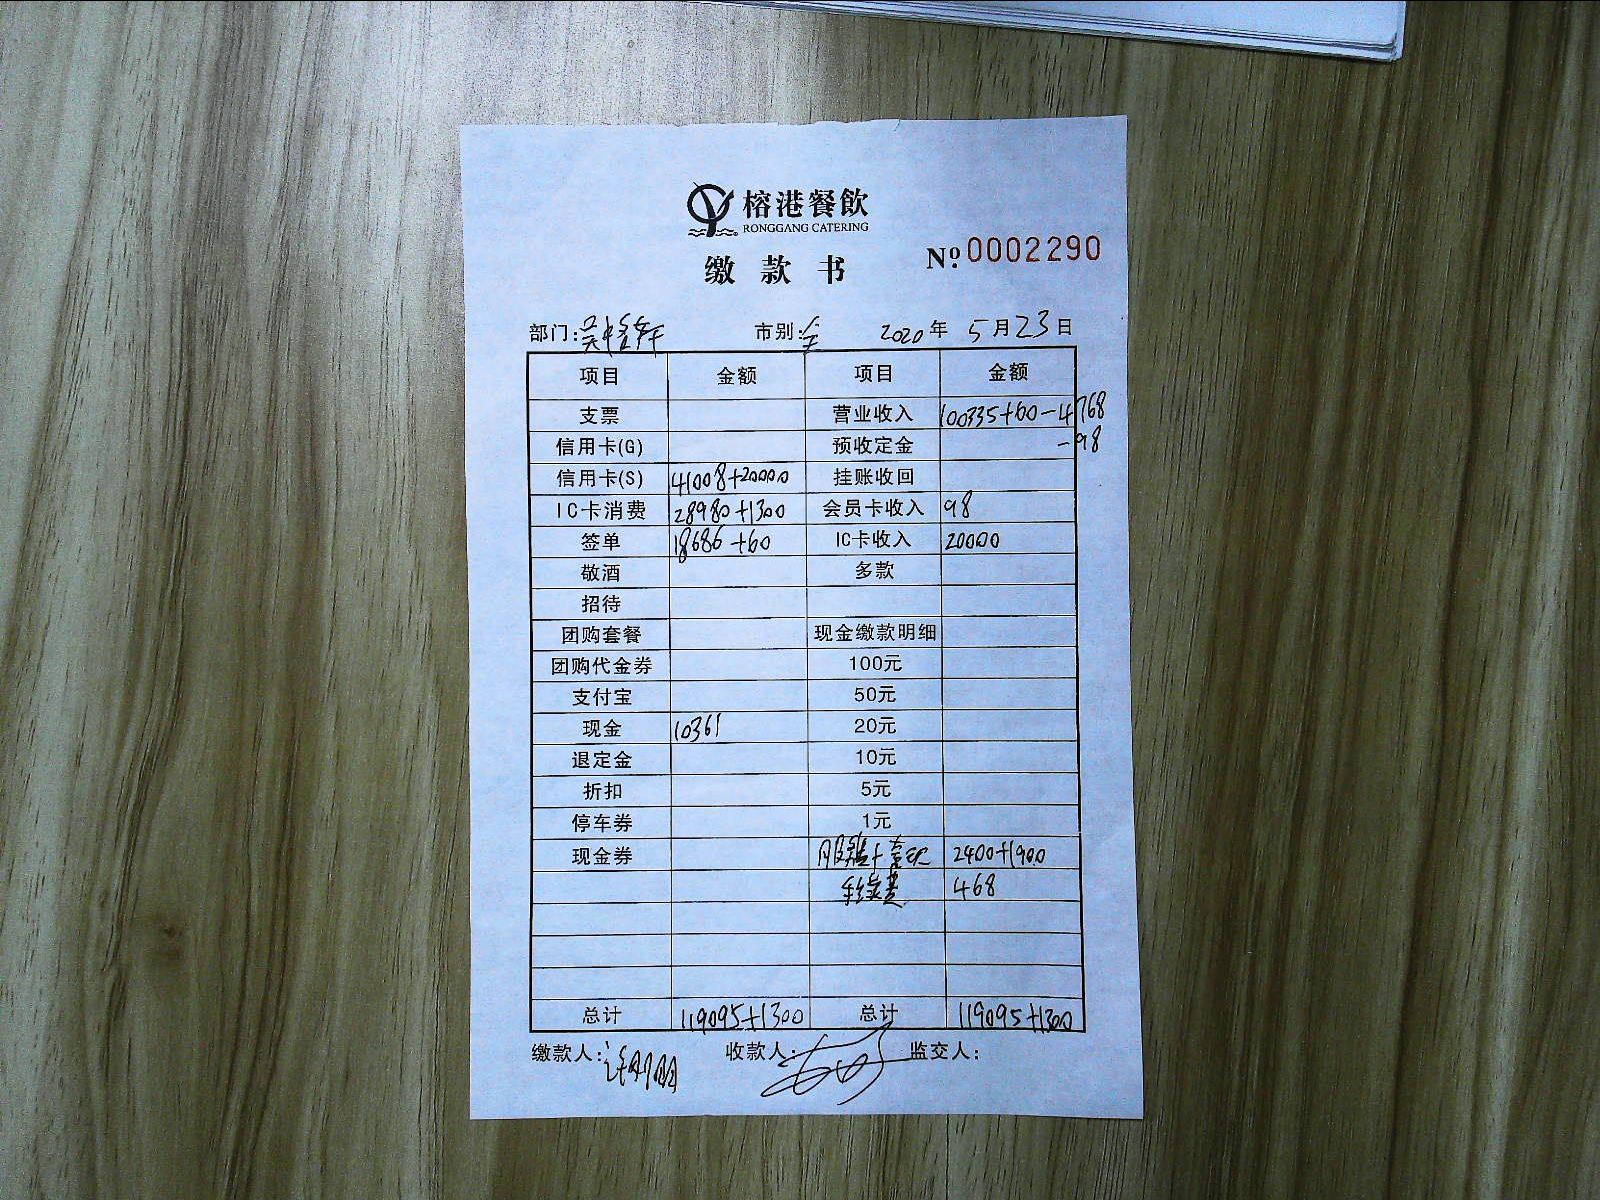 榕港餐飲
RONGGANG CATERING
缴款书
Nº.0002290
部门: 市别:全 2020年5月23日
项目 金额 项目 金额
支票 营业收入 100335+60-4768
-98
信用卡(G) 预收定金
信用卡(S) 41008+20000 挂账收回
IC卡消费 28980+1300 会员卡收入 98
签单 18686+60 IC卡收入 20000
敬酒 多款
招待
团购套餐 现金缴款明细
团购代金券 100元
支付宝 50元
现金 10361 20元
退定金 10元
折扣 5元
停车券 1元
现金券 2400+1900
手续费 468
总计 119095+1300 总计 119095+1300
缴款人: 收款人: 监交人: